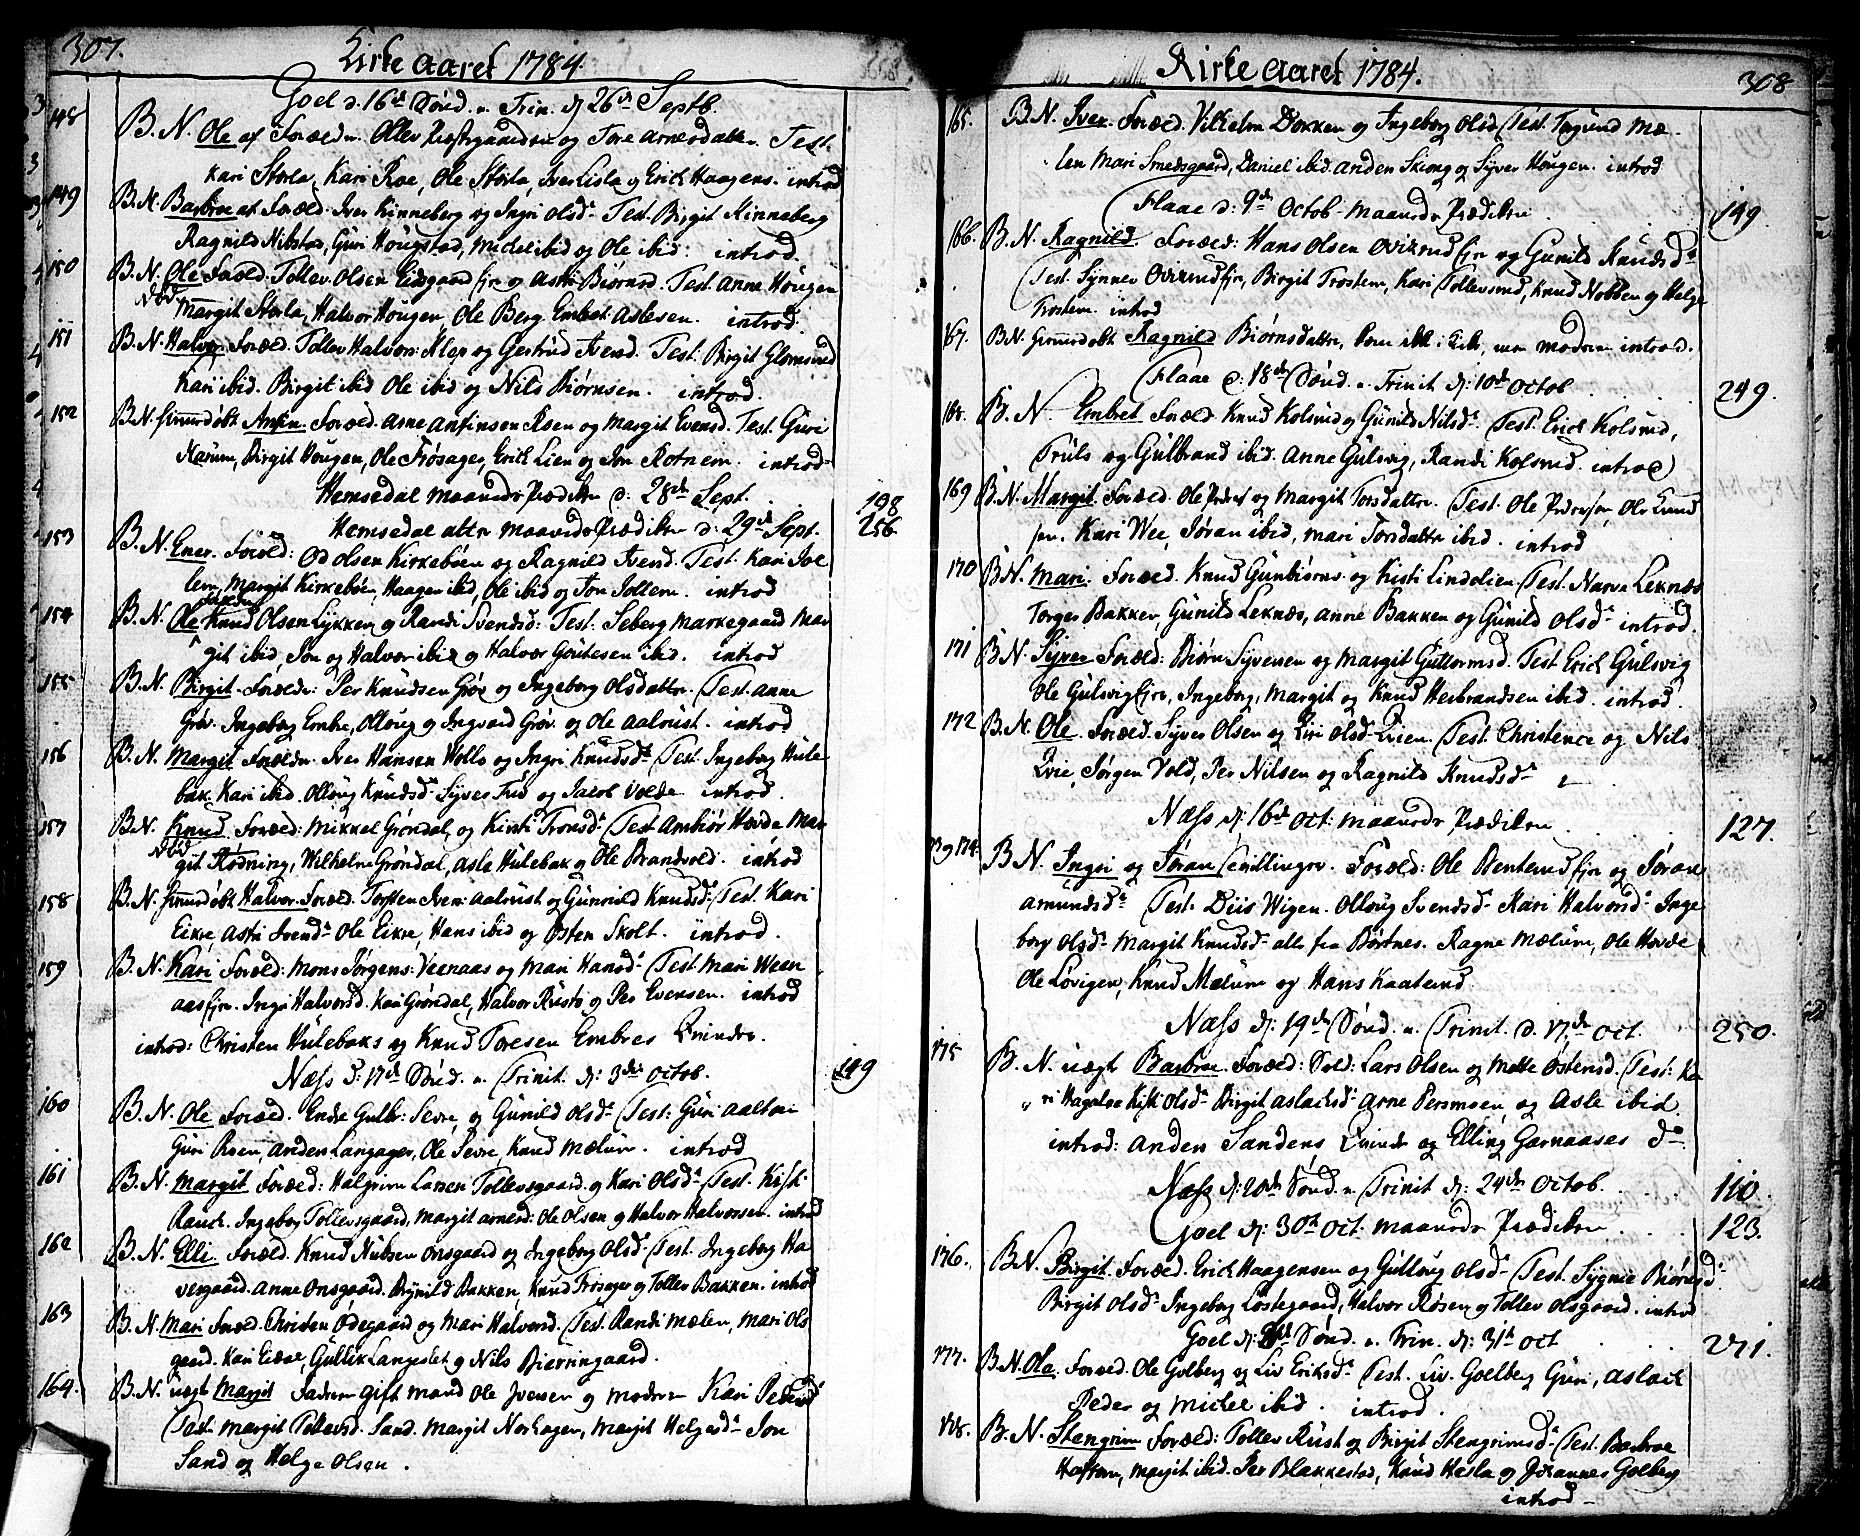 307.
Kirke Aaret 1784
Goel d. 16de Sönd. Trin. d. 26de Septb.
148 B.N. Ole af Foræld. Ollev og Tore Arnesdatter. Test.
Kari Storla, Kari Roe, Ole Storla, Iver Lisla og Erick Haagens. introd
149 B.N. Barbroe af Foræld. Iver Kinneberg og Ingri Olsd. Test. Birgit Kinneberg
Ragnild Nibstad, Guri Hougstad, Michel ibid og Ole ibid: introd.
150 B.N. Ole Foræld. Tollev Olsen Eidsgaard og Astri Biörnsd. Test. Anne Hougen
Nöd.
Margit Storla, Halvor Hougen, Ole Berg Embret Aslesen. introd.
151 B.N. Halvor. Foræld. Tollev Halvors: Klep og Gertrud Svensd. Test. Birgit Glomsrud
Kari ibid. Birgit ibid Ole ibid og Nils Biörnsen. introd.
152 B.N. hiemmedöbt Anfin. Foræld. Arne Anfinsen Roen og Margit Evensd. Test. Guri
Narum, Birgit Hougen, Ole Trösager, Erick Lien og Jon Rotnem. introd
Hemsedal Maaneds Prædiken d. 28de Sept. 198
Hemsedal atter Maaneds Prædiken d. 29de Sept. 256
153 B.N. Ener. Foræld: Od Olsen Kirkeböen og Ragnild Svend. Test. Kari Joe
lem, Margit Kirkeböen, Haagen ibid, Ole ibid og Jon Joltem. introd
154 B.N. Ole Knud Olsen Lykken og Randi Svendsd: Test. Seberg Markegaard Mar
git ibid, Jon og Halvor ibid og Halvor Goutesen ibid. introd
155 B.N. Birgit. Foræld: Per Knudsen Gröv og Ingeborg Olsdatter. Test. Anne
Gröv. Ingeborg Embre, Olloug og Ingvord Gröv. og Ole Aalrust. introd
156 B.N. Margit Foræld. Iver Hansen Hollo og Ingri Knudsd. Test. Ingeborg Hule
bak. Kari ibid. Olloug Knudsd. Syver Frid og Jacob Volde introd.
157 B.N. Knud. Foræld: Mikkel Gröndal, og Kirsti Tronsd. Test. Anbiör Hovde Mar
Nöd
git Födning, Wilhelm Gröndal, Asle Hulebak og Ole Brandvold. introd
158 B.N. hiemmedöbt Halvor. Foræld. Torsten Iver: Aalrust og Gunnild Knudsd. Test. Kari
Eikre, Astri Svend. Ole Eikre, Hans ibid og Osten Skolt. introd.
159 B.N. Kari Foræld: Mons Jörgens: Veenaas og Mari Hansd. Test. Mari Ween
aas. Inge Halvorsd. Kari Gröndal, Halvor Rusto og Per Evensen. introd
introd: Christen Hulebaks og Knud Toresen Embres Qvinder.
Næss d: 17de Sönd. Trinit. d: 3die Octob. 149
160 B.N. Ole Foræld. Endre Gulb: Sevre, og Gunild Olsd. Test: Guri Aaltvei
Guri Roen, Anders Langager, Ole Sevre, Knud Mælum. introd
161 B.N. Margit Foræld: Halgrim Larsen Tollevsgaard og Kari Olsd. Test. Kisti
Rauch. Ingeborg Tollevsgaard, Margit Arnesd: Ole Olsen og Halvor Halvorsen. introd
162 B.N. Elli Foræld. Knud Nubsen Onsgaard og Ingeborg Olsd. Test. Ingeborg Ha
versgaard. Anne Onsgaard. Rynild Bakken, Knud Trösager og Tollev Bakken. introd
163 B.N. Mari Foræld. Christen Ödegaard og Mari Halvorsd. Test. Randi Mælen, Mari Ols
gaard. Kari Eidal, Gullik Langeslet og Nils Bierringaard.
164. B.N. uægt Margit Faderen gift Mand Ole Iversen og Moderen Kari Pedersd
Test. Margit Tollevsd. Sand. Margit Norhagen, Margit Helgesd. Jon
Sand og Helge Olsen.
Kirke Aaret 1784. 308
165. B.N. Iver. Foræld. Vilhelm Dokken og Ingeborg Olsd Test. Torgund Mæ
len Mari Smedsgaard, Daniel ibid. Anders Skiong og Syver Hougen. introd
Flaae d: 9de Octob. Maaneds Prædiken 149
166. B.N. Ragnild. Foræld: Hans Olsen Ovizrud og Gunild Knudsd
Test. Synnev Ovizrud, Birgit Trostem, Kari Tollevsrud, Knud Nobben og Helge
Trostem. introd
167. B.N. hiemmedöbt Ragnild Biörnsdatter, kom ikke i Kirke, men Moderen introd.
Flaae d: 18de Sönd. Trinit. d: 10de Octob. 249.
168. B.N. Embret Foræld. Knud Kolsrud og Gunild Nilsd. Test. Erick Kolsrud,
Truls og Gulbrand ibid. Anne Gulsvig, Randi Kolsrud. introd
169 B.N. Margit. Foræld. Ole Peders og Margit Torsdatter. Test. Ole Pedersen, Ole Knud
sen. Kari Wee, Jöran ibid, Mari Torsdatter ibid. introd
170 B.N. Mari. Foræld. Knud Gunbiörns. og Kisti Lindelien. Test. Narve Leknæs
Torger Bakken, Gunild Leknæs, Anne Bakken og Gunild Olsd. introd.
171 B.N. Syver Foræld: Biörn Syversen og Margit Guttormsd. Test. Erick Gulsvig
Ole Gulsvig, Ingeborg, Margit og Knud Herbrandsen ibid. introd.
172 B.N. Ole. Foræld. Syver Olsen og Kari Olsd. Qvien. Test. Christence og Nils
Qvie, Jörgen Vold, Per Nilsen og Ragnild Knudsd.
Næss d: 16de Oct: Maaneds Prædiken 127.
173 og 174 B.N. Ingri og Jöran Tvillinger. Foræld: Ole Bentsrud og Jöran
Amundsd. Test. Diis Wigen. Olloug Svendsd. Kari Halvorsd. Inge
borg Olsd. Margit Knudsd. alle fra Börtnes. Ragne Mælum, Ole Hovde
Ole Lövigen, Knud Mælum og Hans Kaatsrud.
Næss d: 19de Sönd. Trinit. d. 17de Oct. 250.
175 B.N. uægt Barbroe. Foræld: Sold: Lars Olsen og Mette Ostensd. Test: Ka
ri Hagaloe Kisti Olsd. Birgit Aslacksd. Arne Persmoen og Asle ibid.
introd: Anden Sandens Qvinde og Elling Garnaases do
Næss d: 20de Sönd. Trinit d: 24de Octob. 110.
Goel d: 30te Oct. Maaneds Prædiken 123.
176. B.N. Birgit. Foræld. Erick Haagensen og Gulloug Olsd. Test. Sygnie Biörnsd.
Birgit Olsd. Ingeborg Löstegaard, Halvor Rosen og Tollev Olsgaard. introd
Goel d: Sönd. Trin. d: 31te Oct 271.
177. B.N. Ole. Foræld. Ole Golberg og Liv Eriksd. Test. Liv. Goelberg Guri, Aslack
Peder og Michel ibid. introd.
178. B.N. Stengrim Foræld: Tollev Rust og Birgit Stengrimsd. Test. Barbroe
Haftorn, Margit ibid. Per Blakkestad, Knud Hesla og Johannes Golberg
introd